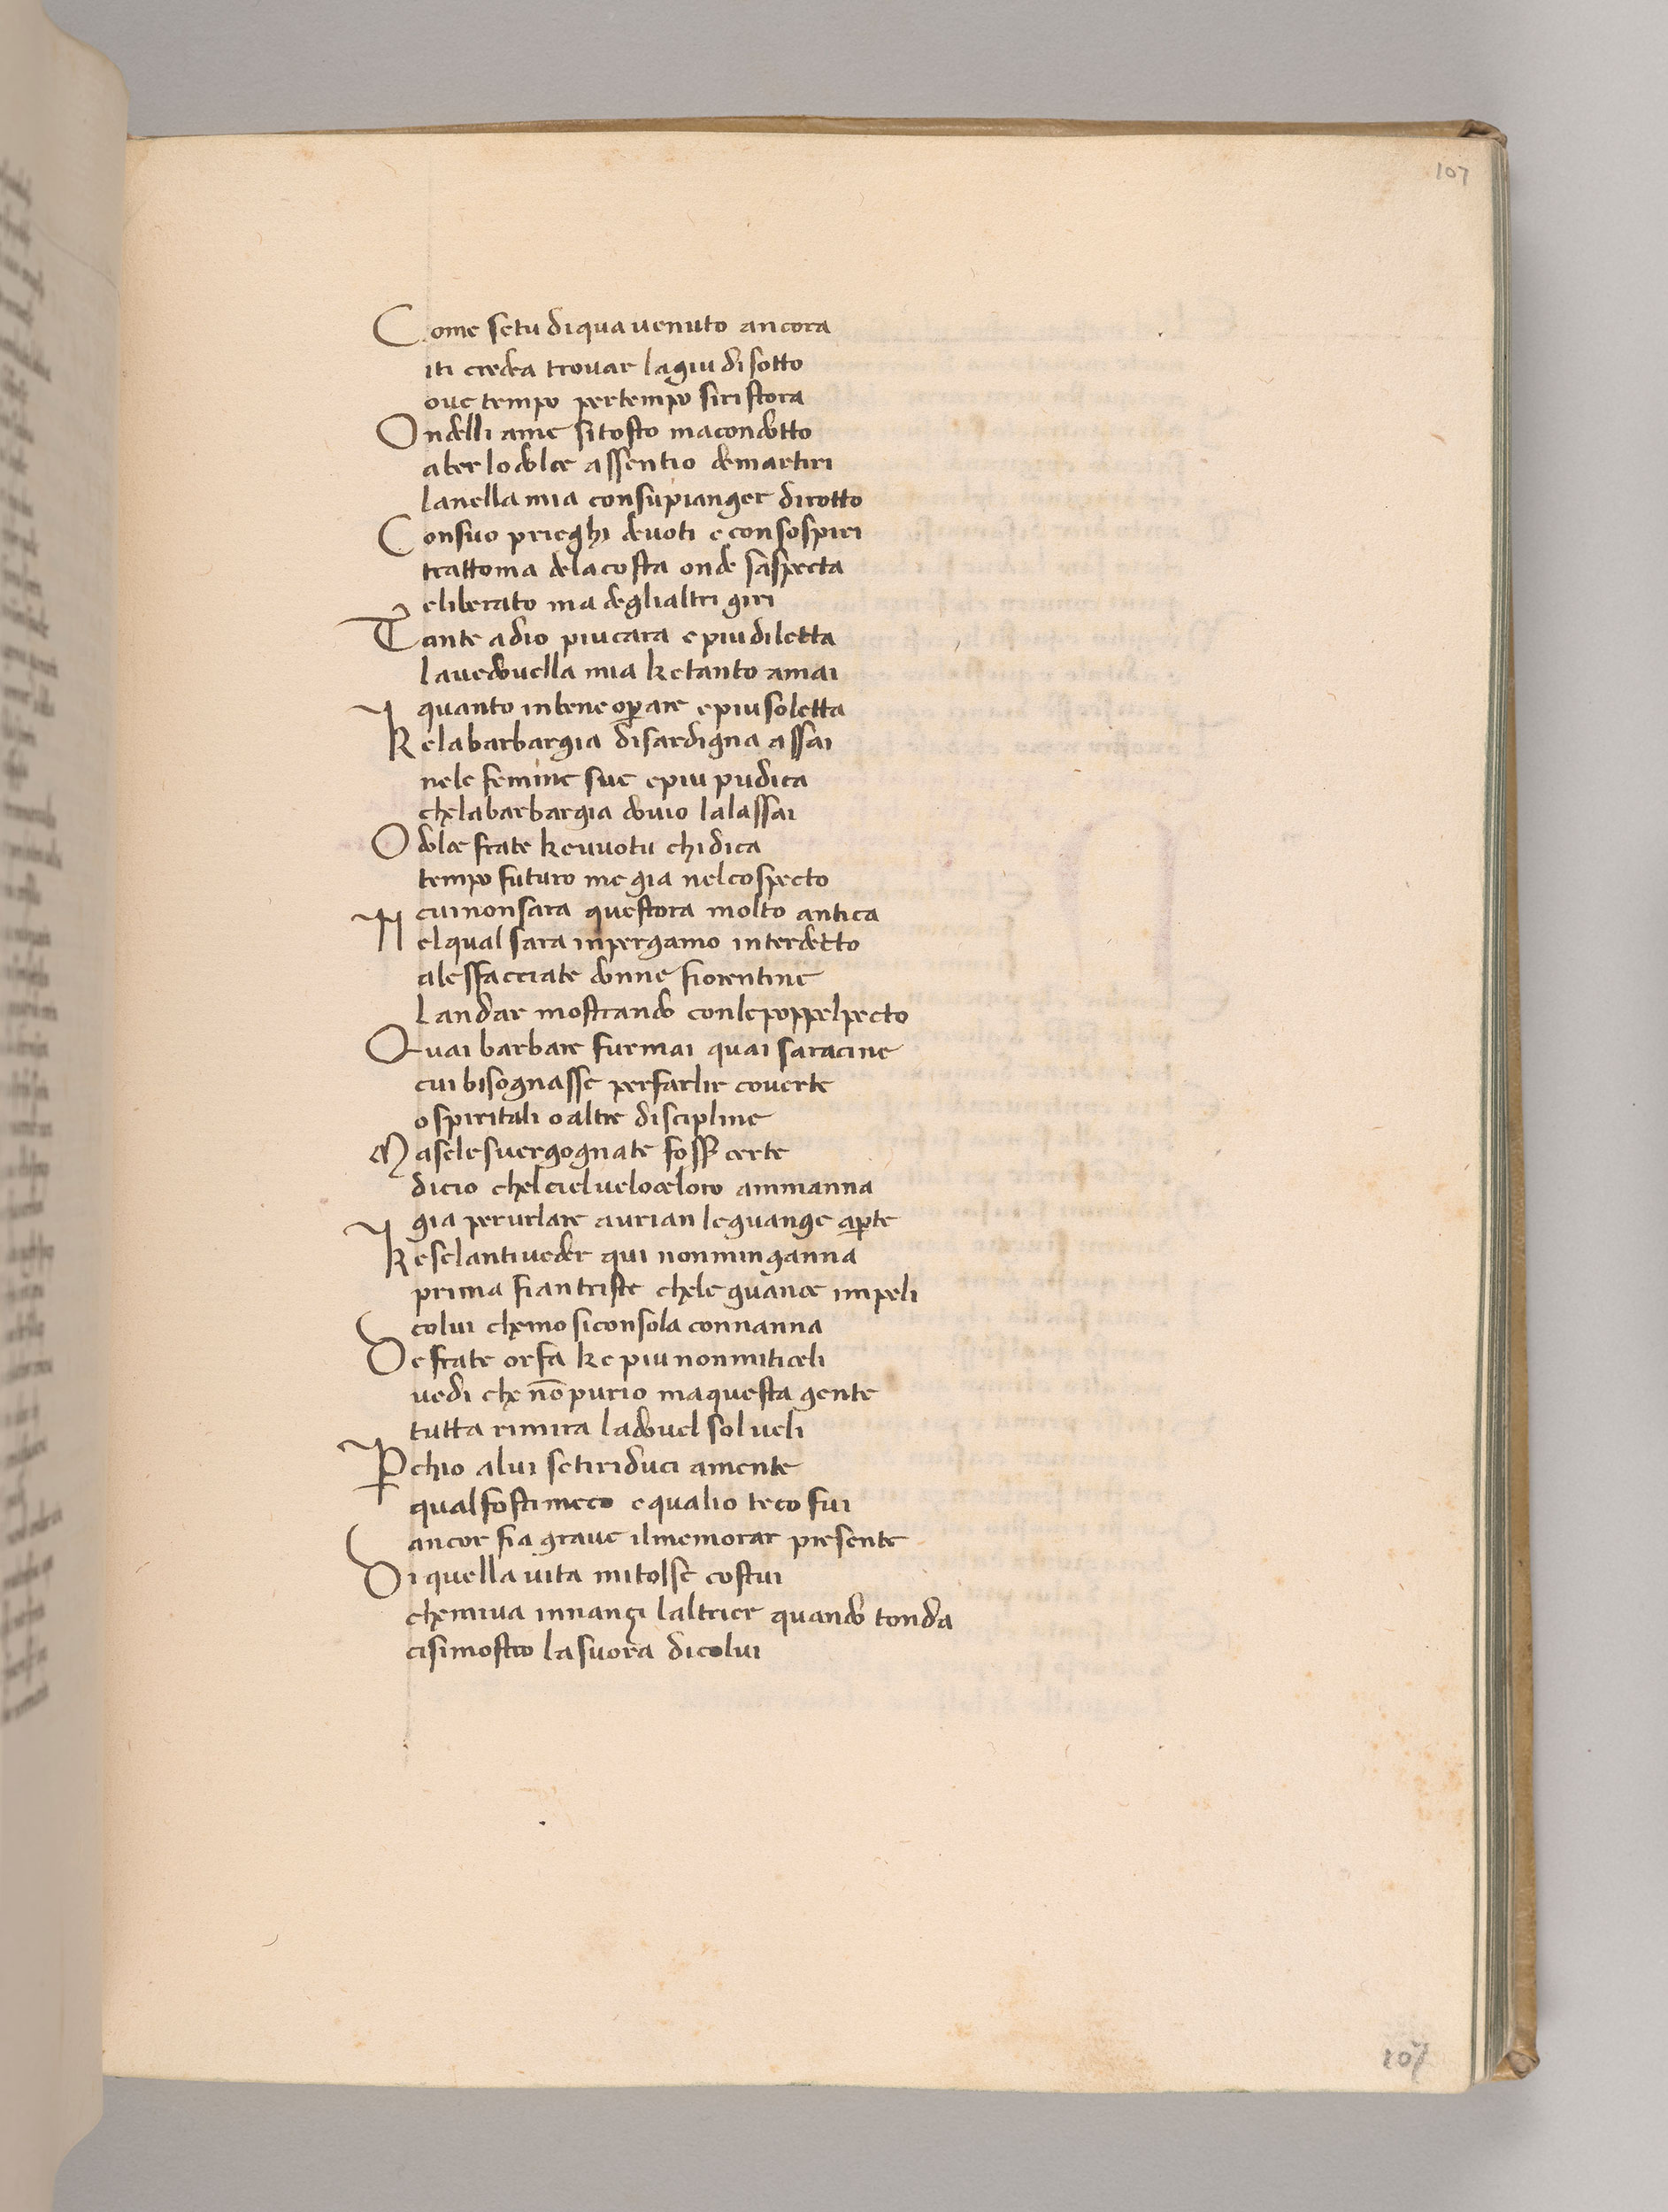 107
Come setu diqua venuto ancora
iti credea trovar lagiu disotto
ove tempo pertempo siristora
Ondelli ame sitosto macondotto
aber lo dolce assentio demartiri
lanella mia consupianger dirotto
Consuo prieghi devoti e consospiri
trattoma delacosta onde saspecta
e liberato ma deglialtri giri
Tante adio piucara e piudiletta
lavedovella mia ketanto amai
quanto inbene opare epiusoletta
Kelabarbargia disardigna assai
nele femine sue epiu pudica
chelabarbargia dovio lalassai
O dolce frate kevvotu chidica
tempo futuro me gia nelcospecto
cuinonsara questora molto antica
Nelqual sara inpergamo interdetto
alesfacciate donne fiorentine
landar mostrando conlepoppelpecto
Quai barbare furmai quai saracine
cui bisognasse perfarlir coverte
o spiritali o altre discipline
Maselesvergognate foss certe
dicio chelciel veloceloro ammanna
gia perurlare avrian leguange aperte
Keselantiveder qui nonminganna
prima fiantriste chele guance impeli
colui chemo siconsola connanna
De frate orfa ke piunonmiticeli
vedi che nō purio maquesta gente
tutta rimira ladovel sol veli
Pchio alui setiriduci amente
qualfostimeco equalio teco fui
ancor fia grave ilmemorar presente
Di quella vita mitolse costui
chemiva innançi laltrier quando tonda
cisimostro lasuora dicolui
107